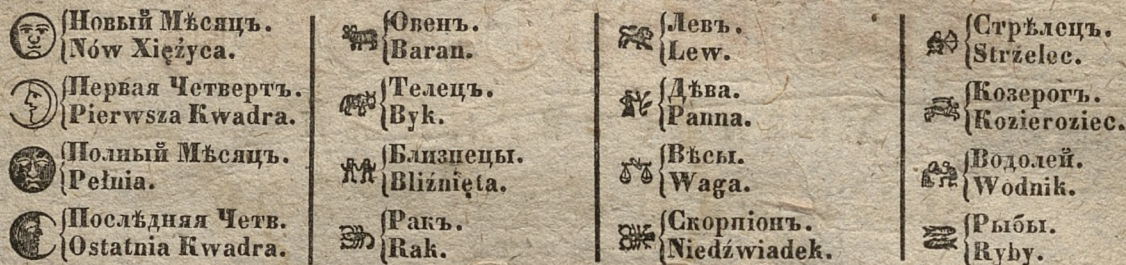 Новый Мѣсяцъ.
Nów Xiężyca.
Первая Четвертъ.
Pierwsza Kwadra.
Полный Мѣсяцъ.
Pełnia.
Послѣдняя Четв.
Ostatnia Kwadra.
Овенъ.
Baran.
Телецъ.
Byk.
Близнецы.
Bliźnięta.
Ракъ.
Rak.
Левъ.
Lew.
Дѣва.
Panna.
Вѣсы.
Waga.
Скорпіонъ.
Niedźwiadek.
Стрѣлецъ.
Strzelec.
Козерогъ.
Kozieroziec.
Водолей.
Wodnik.
Рыбы.
Ryby.